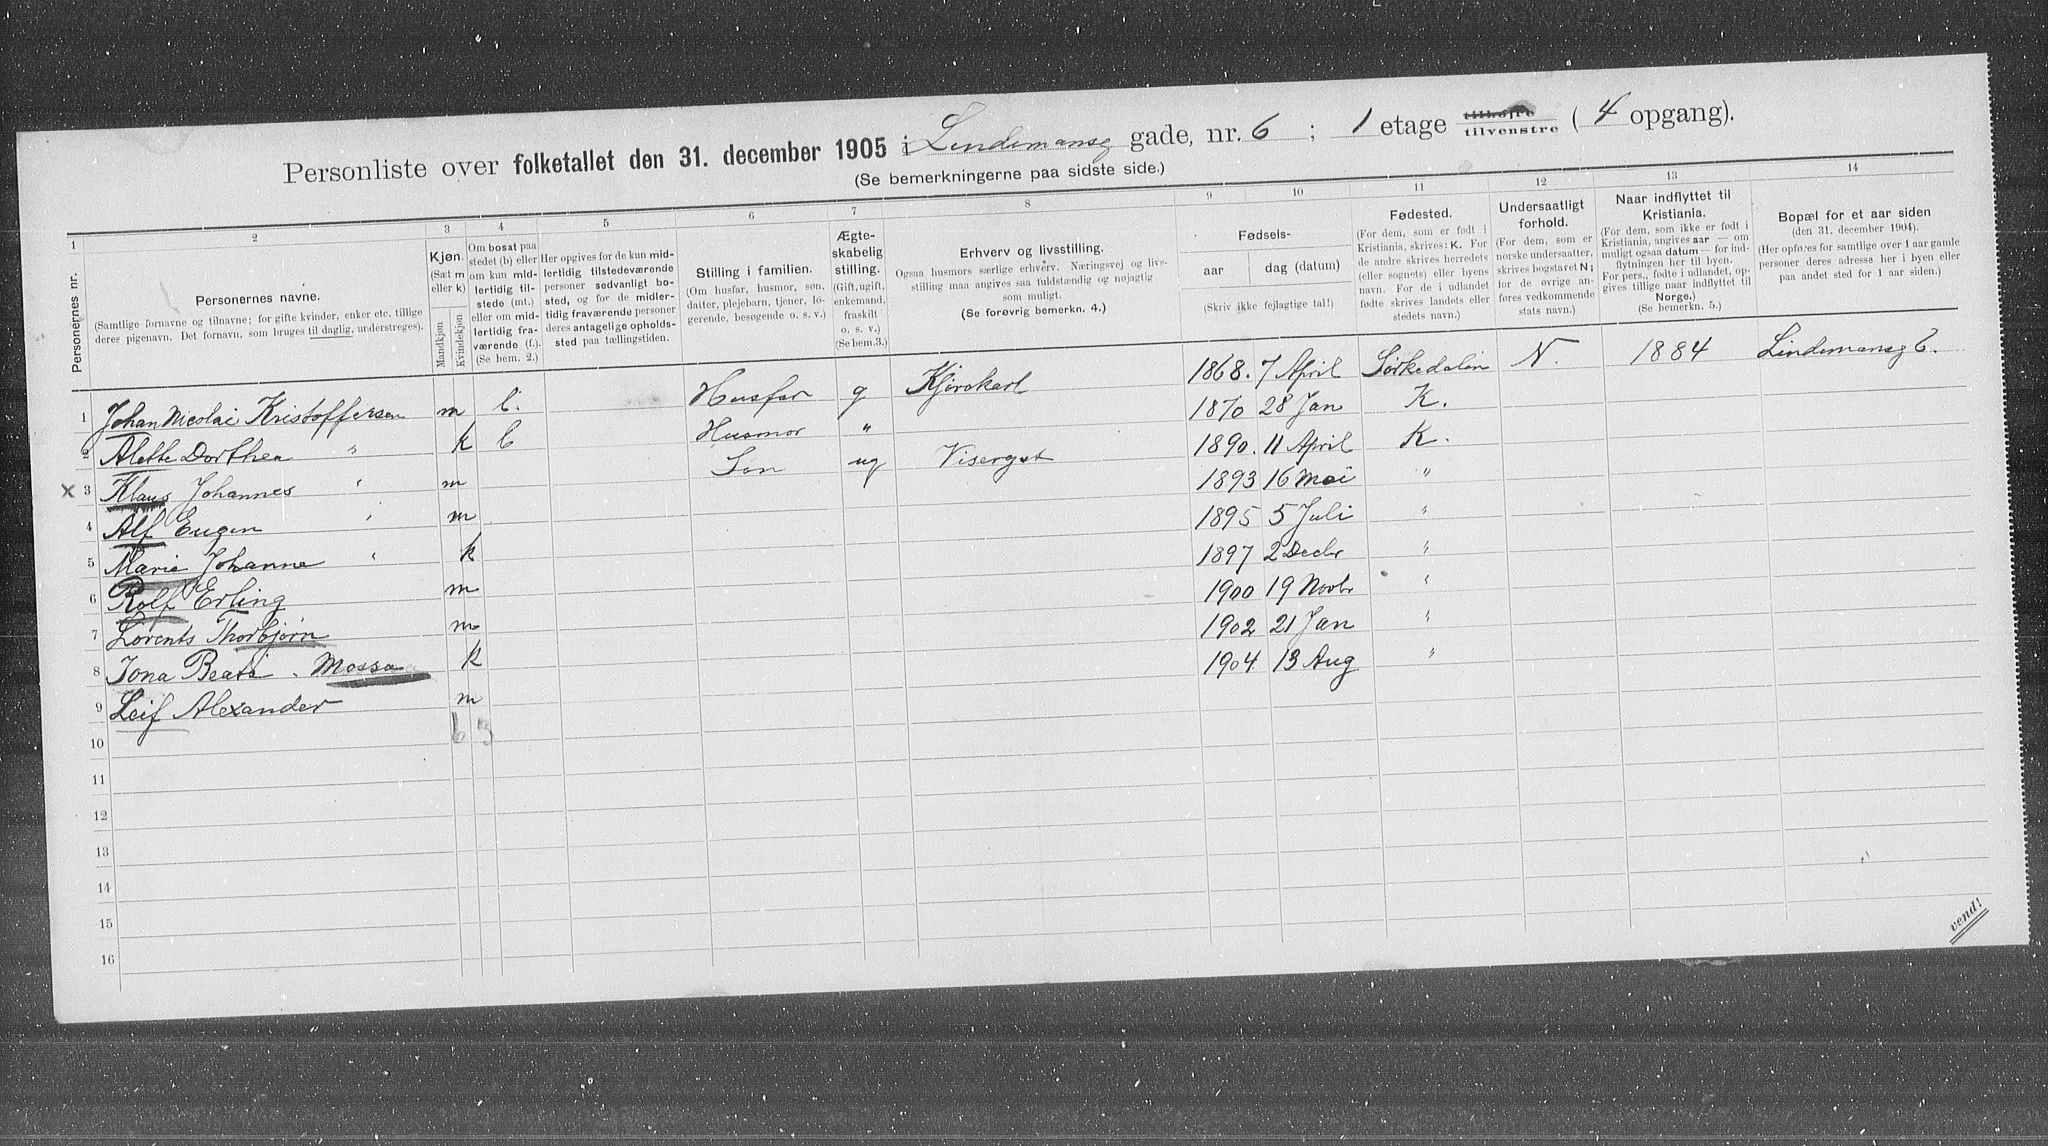 Personliste over folketallet den 31. december 1905 i Lindemansg gade, nr. 6 ; 1 etage tilhøjre tilvenstre ( 4 opgang).
(Se bemerkningerne paa sidste side.)
1 2 3 4 5 6 7 8 9 10 11 12 13 14
Personernes nr.
Personernes navne.
(Samtlige fornavne og tilnavne; for gifte kvinder, enker etc. tillige
deres pigenavn. Det fornavn, som bruges til daglig, understreges).
Kjøn.
(Sæt m
eller k)
Mandkjøn
Kvindekjøn
Om bosat paa
stedet (b) eller
om kun mid-
lertidig til-
stede (mt.)
eller om mid-
lertidig fra-
værende (f.).
(Se bem. 2.)
Her opgives for de kun mid-
lertidig tilstedeværende
personer sedvanlig bo-
sted, og for de midler-
tidig fraværende personer
deres antagelige opholds-
sted paa tællingstiden.
Stilling i familien.
(Om husfar, husmor, søn,
datter, plejebarn, tjener, lo-
gerende, besøgende o. s. v.)
Ægte-
skabelig
stilling.
(Gift, ugift,
enkemand,
fraskilt
o. s. v.)
(Se bem.3.)
Erhverv og livsstilling.
Ogsaa husmors særlige erhverv. Næringsvej og livs-
stilling maa angives saa fuldstændig og nøjagtig
som muligt.
(Se forøvrig bemerkn. 4.)
Fødsels-
aar dag (datum)
(Skriv ikke fejlagtige tal!)
Fødested.
(For dem, som er født i
Kristiania, skrives: K. For
de andre skrives herredets
(eller sognets) eller byens
navn. For de i udlandet
fødte skrives landets eller
stedets navn.)
Undersaatligt
forhold.
(For dem, som er
norske undersaatter,
skrives bogstavet N;
for de øvrige an-
føres vedkommende
stats navn.)
Naar indflyttet til
Kristiania.
(For dem, som ikke er født i
Kristiania, angives aar — om
muligt ogsaa datum — for ind-
flytningen her til byen.
For pers., fødte i udlandet, op-
gives tillige naar indflyttet til
Norge.)
(Se bemerkn. 5.)
Bopæl for et aar siden
(den 31. december 1904).
(Her opføres for samtlige over 1 aar gamle
personer deres adresse her i byen eller
paa andet sted for 1 aar siden.)
1 Johan Nicolai Kristoffersen m b. Husfar g Kjørekarl 1868. 7 April Sørkedalen N. 1884 Lindemansg 6.
2 Alette Dorthea " k b Husmor " 1870 28 Jan K.
x 3 Klaus Johannes " m Søn ug Visergut 1890. 11 April K.
4 Alf Eugen " m 1893 16 Mai "
5 Marie Johanne " k 1895 5 Juli "
6 Rolf Erling m 1897 2 Decbr "
7 Lorents Thorbjørn m 1900 19 Novbr "
8 Jona Beate . Mossa k 1902 21 Jan "
9 Leif Alexander m 1904 13 Aug "
10 6 3
11
12
13
14
15
16
vend!